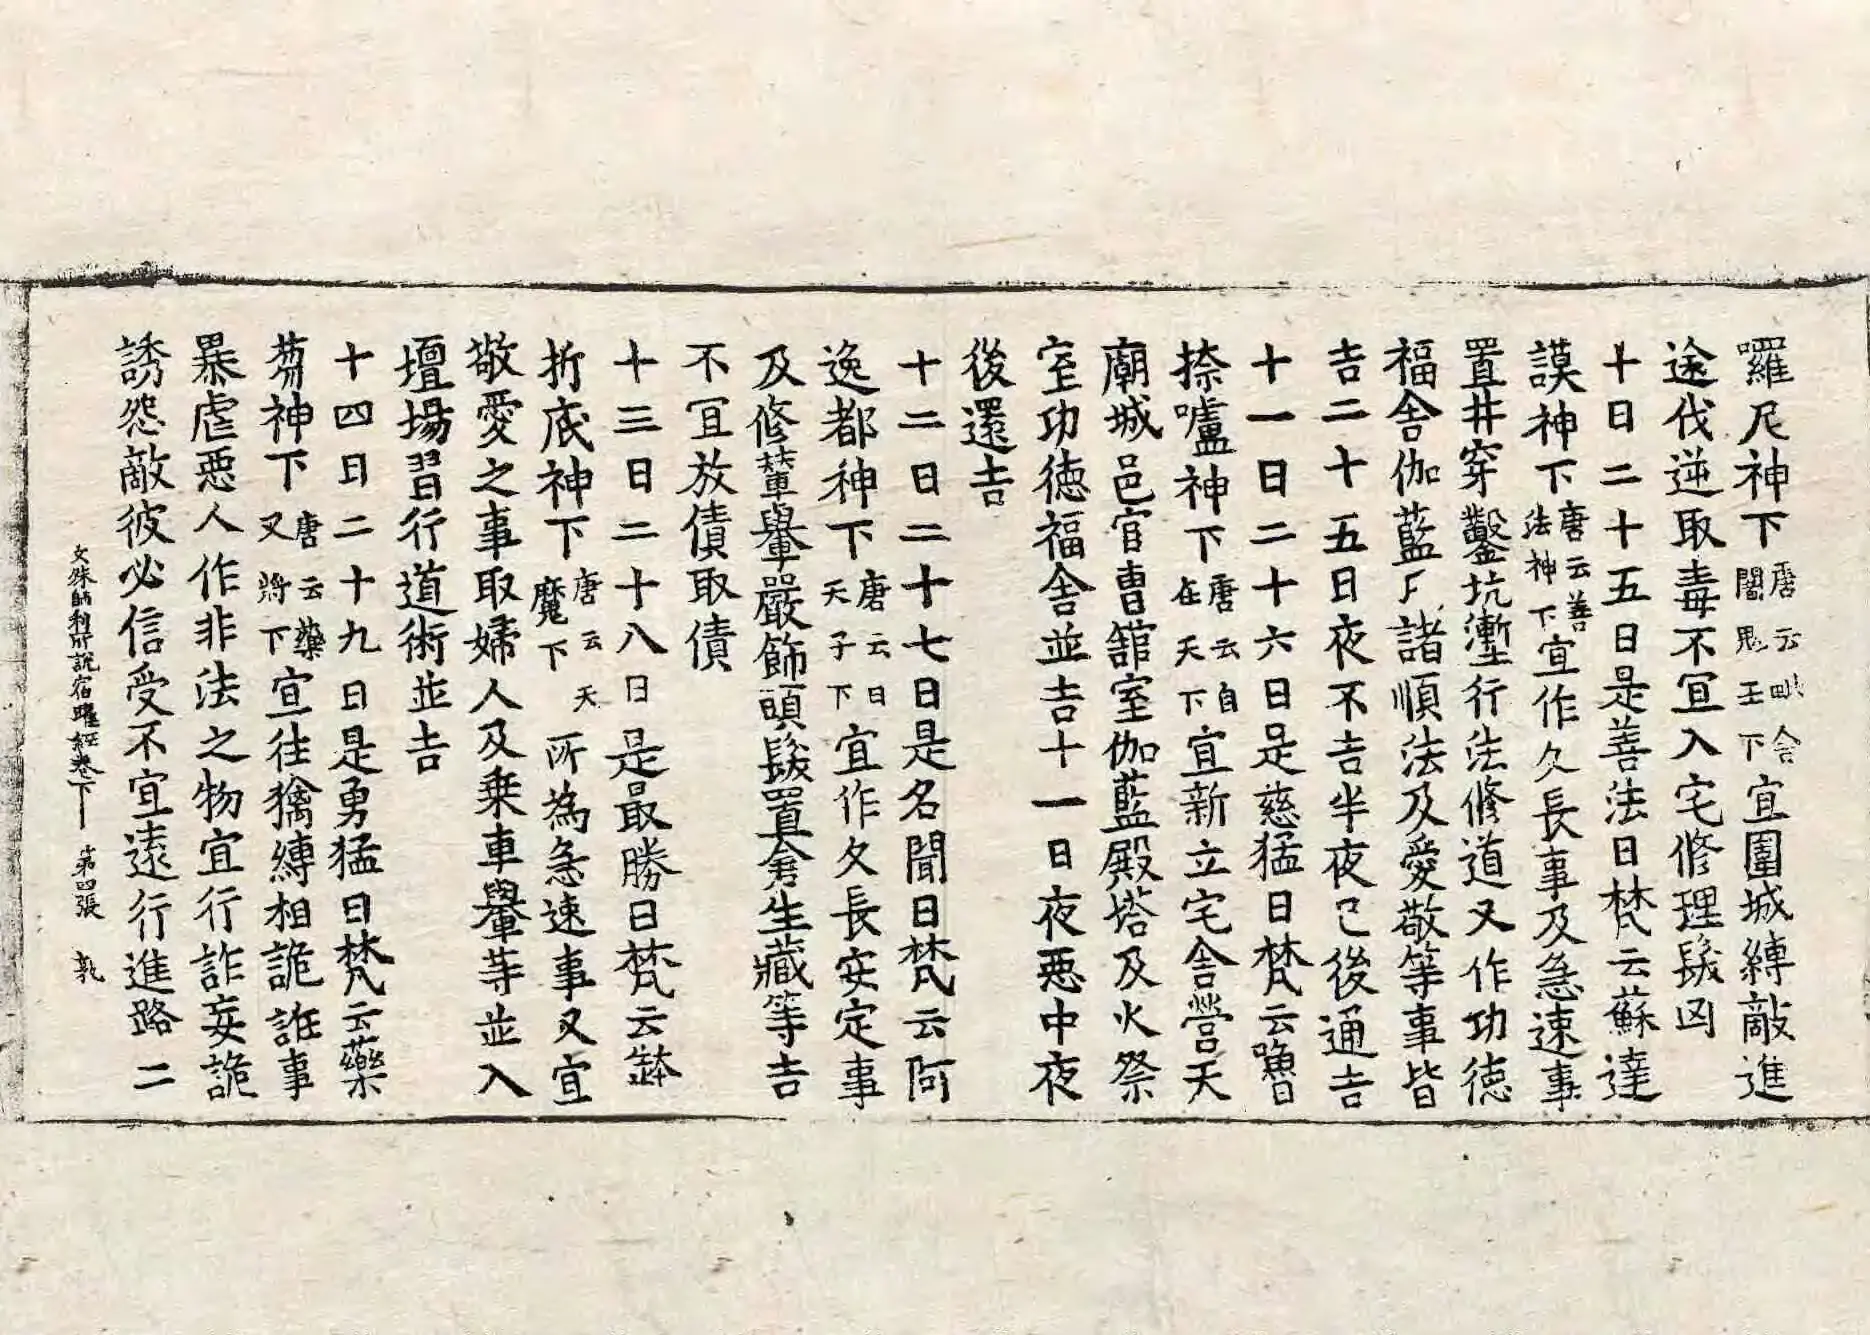 囉尼神下唐云毗舍闍鬼王下宜圍城縛敵進
途伐逆取毒不宜入宅修理髮凶
十日二十五日是善法日梵云蘇達
謨神下唐云善法神下宜作久長事及急速事
置井穿鑿坑壍行法修道又作功德
福舍伽藍下諸順法及愛敬等事皆
吉二十五日夜不吉半夜已後通吉
十一日二十六日是慈猛日梵云嚕
捺嚧神下唐云自在天下宜新立宅舍營天
廟城邑官曹館室伽藍殿塔及火祭
室功德福舍並吉十一日夜惡中夜
後還吉
十二日二十七日是名聞日梵云阿
逸都神下唐云日天子下宜作久長安定事
及修輦轝嚴飾頭髮置倉生藏等吉
不宜放債取債
十三日二十八日是最勝日梵云
折底神下唐云天魔下所為急速事又宜
敬愛之事取婦人及乗車轝等並入
壇場習行道術並吉
十四日二十九日是勇猛日梵云藥
芻神下唐云藥叉將下宜往擒縛相詭誑事
暴虐惡人作非法之物宜行詐妄詭
誘怨敵彼必信受不宜遠行進路二
文殊師利所說宿曜經卷下 第四張